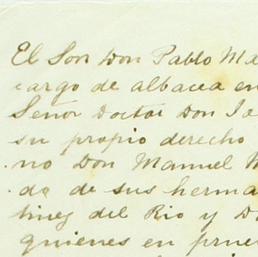 El Sor Don Pablo Ma
cargo de albacea en
Señor Doctor Don Ja
su propio derecho
no Don Manuel M
da de sus herma
tinez del Rio y D
quienes en prue